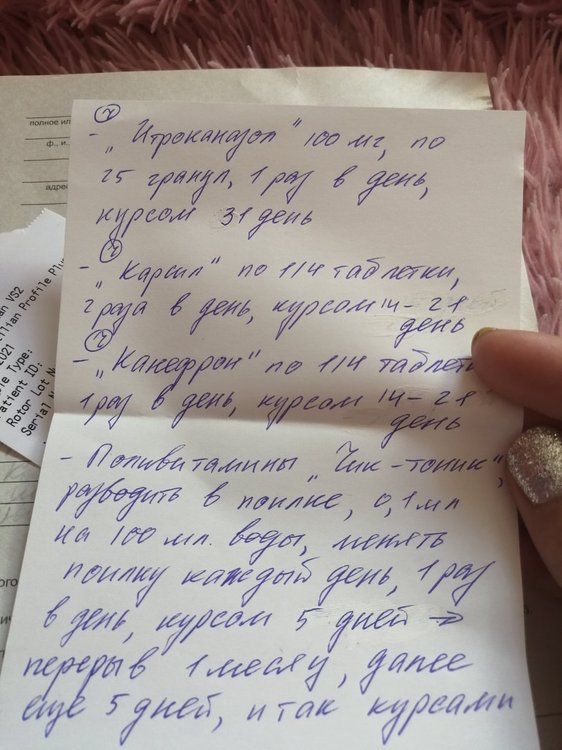 полное
ф., и.,
адре
- „Итроканазол" 100 мг, по
25 гранул, 1 раз в день,
курсом 31 день
- „Карсил" по 1/4 таблетки,
2 раза в день, курсом 14-21
день
- „Канефрон" по 1/4 таблет
1 раз в день, курсом 14-21
день
- Поливитамины „Чик-тоник",
разводить в поилке, 0,1 мл
на 100 мл. воды, менять
поилку каждый день, 1 раз
в день, курсом 5 дней →
перерыв 1 месяц, далее
еще 5 дней, и так курсами
an VS2
ilian Profile Plu
2021
le Type:
atient ID:
Rotor Lot N
Serial N